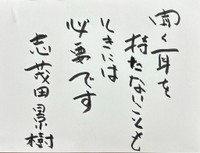 聞く耳を
持たないことも
ときには
必要です
志茂田景樹